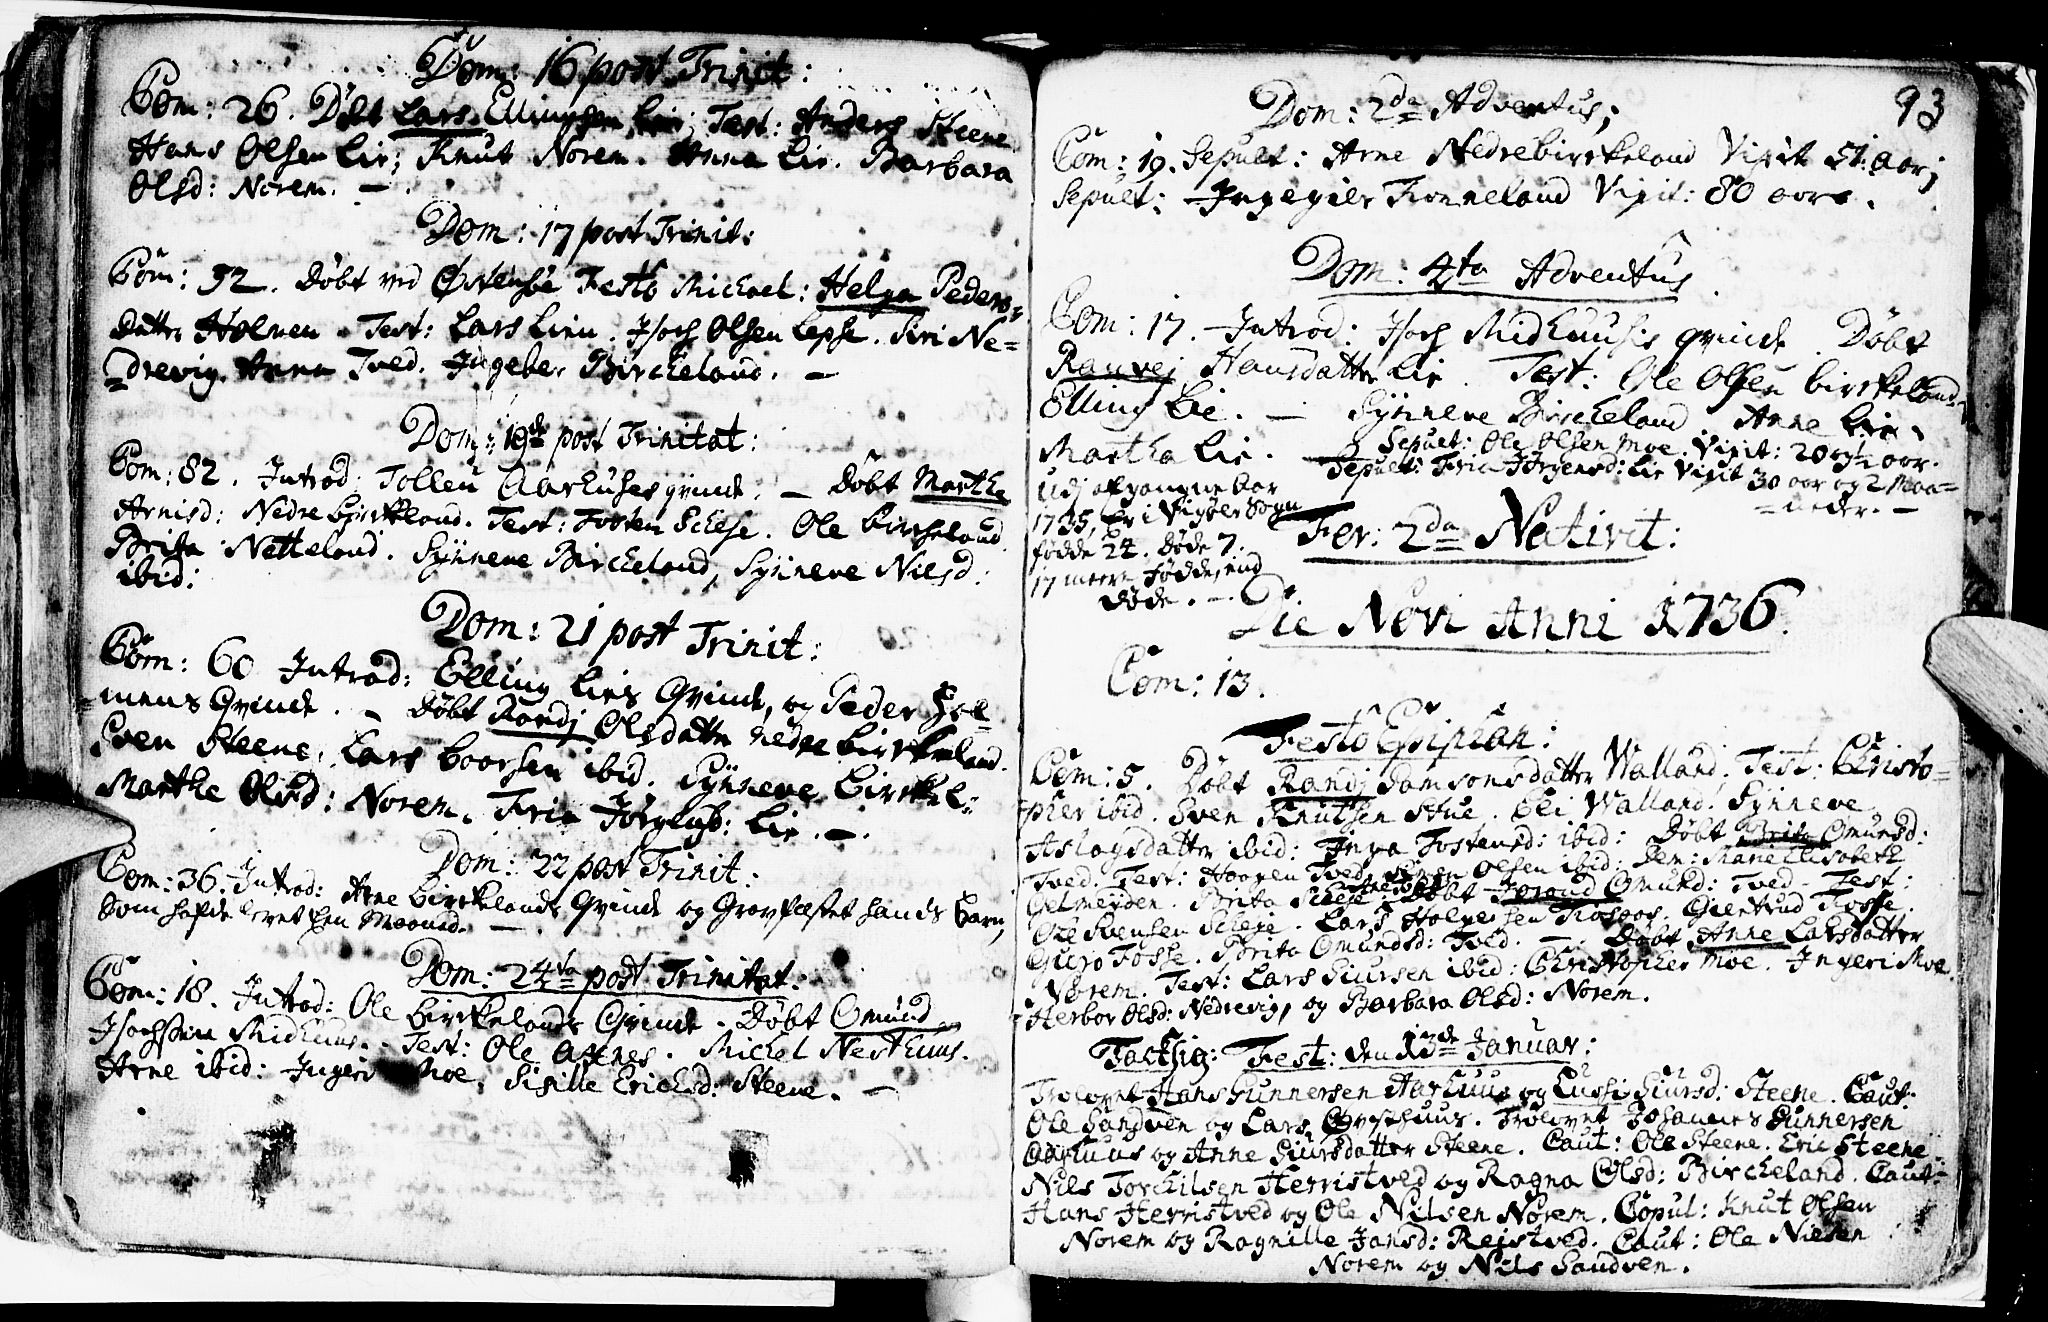 Dom: 16 post Trinit:
Com: 26. Døbt Lars Ellingsen Lie; Test: Anders Steene
Hans Olsen Lie; Knut Norem. Anna Lie. Barbara
Olsd: Norem. —
Dom: 17 post Trinit:
Com: 32. Døbt ved Østensøe Festo Michael: Helga Peders-
Datter Holmen. Test: Lars Lien. Isach Olsen Lepse. Siri Ne=
=drevig. Anna Tved. Ingebor Birckeland. —
Dom: 19de post Trinitat:
Com: 82. Introd: Tolleu Aarhuses qvinde. — Døbt Marthe
Arnisd: Nedre birckeland. Test: Tosten Scheie. Ole birckeland
Brita Netteland. Synneve Birckeland, Synneve Nielsd:
ibid:
Dom: 21 post Trinit:
Com: 60 Introd: Elling Lies Qvinde, og Peder Hol=
=mens Qvinde. — Døbt Randj Olsdatter nedre birckeland.
Sven Steene, Lars boorsen ibid. Synneve birckel=
Marthe Olsd: Norem. Siri Jørgensd: Lie. —
Dom: 22 post Trinit:
Com: 36. Introd: Arne birckelands Qvinde og Gravfæstet hands barn,
som hafde levet een Maaned. —
Dom: 24ta post Trinitat:
Com: 18. Introd: Ole birckelands Qvinde. Døbt Omund
Isachsen Midhuus. Test: Ole Axnes. Michel Nesthuus.
Arne ibid: Ingeri Moe. Sisille Ericksd: Steene. —
93
Dom: 2da Adventus;
Com: 19. Sepult: Arne Nedrebirckeland Vixit 51. aar;
Sepult: Ingegier Fonneland Vixit: 80 aar.
Dom: 4ta Adventus
Com: 17. Introd: Isach Midhuusis qvinde. Døbt
Ranvej Hansdatter Lie. Test: Ole Olsen birckeland
Elling Lie. — Synneve Birckeland Anne Lie.
Martha Lie. Sepult: Ole Olsen Moe. Vixit: 20 og ½ aar.
Sepult: Siri Jørgensd: Lie Vixit 30 aar og 2 Maa=
=neder. —
Udj afgangne Aar
1735, Er i Vigøer Sogn
fødde 24. Døde 7.
17 meere fødde, end
døde. —
Fer: 2da Nativit:
Die Novi Anni 1736.
Com: 13.
Festo Epiphan:
Com: 5. Døbt Randj Samsonsdatter Walland. Test: Christo=
=pher ibid. Sven Knutsen Stue. Eli Walland. Synneve
Aslagsdatter ibid: Inga Tostensd: ibid: Døbt Brita Omundsd:
Tved. Test: Haagen Tved, Simen Olsen ibid: Dem: Marie Elisabeth
Gelmeyden. Brita Scheie. Døbt Joraand Omund: Tved. Test:
Ole Svensen Scheie. Lars Holgersen Fosse. Giertrud Fosse.
Guro Fosse. Brita Omundsd: Tved. — Døbt Anne Larsdatter
Norem. Test: Lars Siursen ibid: Christopher Moe. Ingeri Moe.
Herbor Olsd: Nedrevig, og Barbara Olsd: Norem.
Tacksig: Fest: den 13de Januar:
Trolovet Hans Gunnersen Aarhuus og Lussi Siursd: Steene. Caut:
Ole Sandven og Lars Øvsthuus. Trolovet Johannes Gunnersen
Aarhuus og Anne Siursdatter Steene. Caut: Ole Steene. Eric Steene.
Nils Torchilsen Herristved og Ragna Olsd: Birckeland. Caut:
Hans Herristved og Ole Nilsen Norem. Copul: Knut Olsen
Norem og Ragnille Jansd: Reistved. Caut: Ole Nielsen
Norem og Nils Sandven.